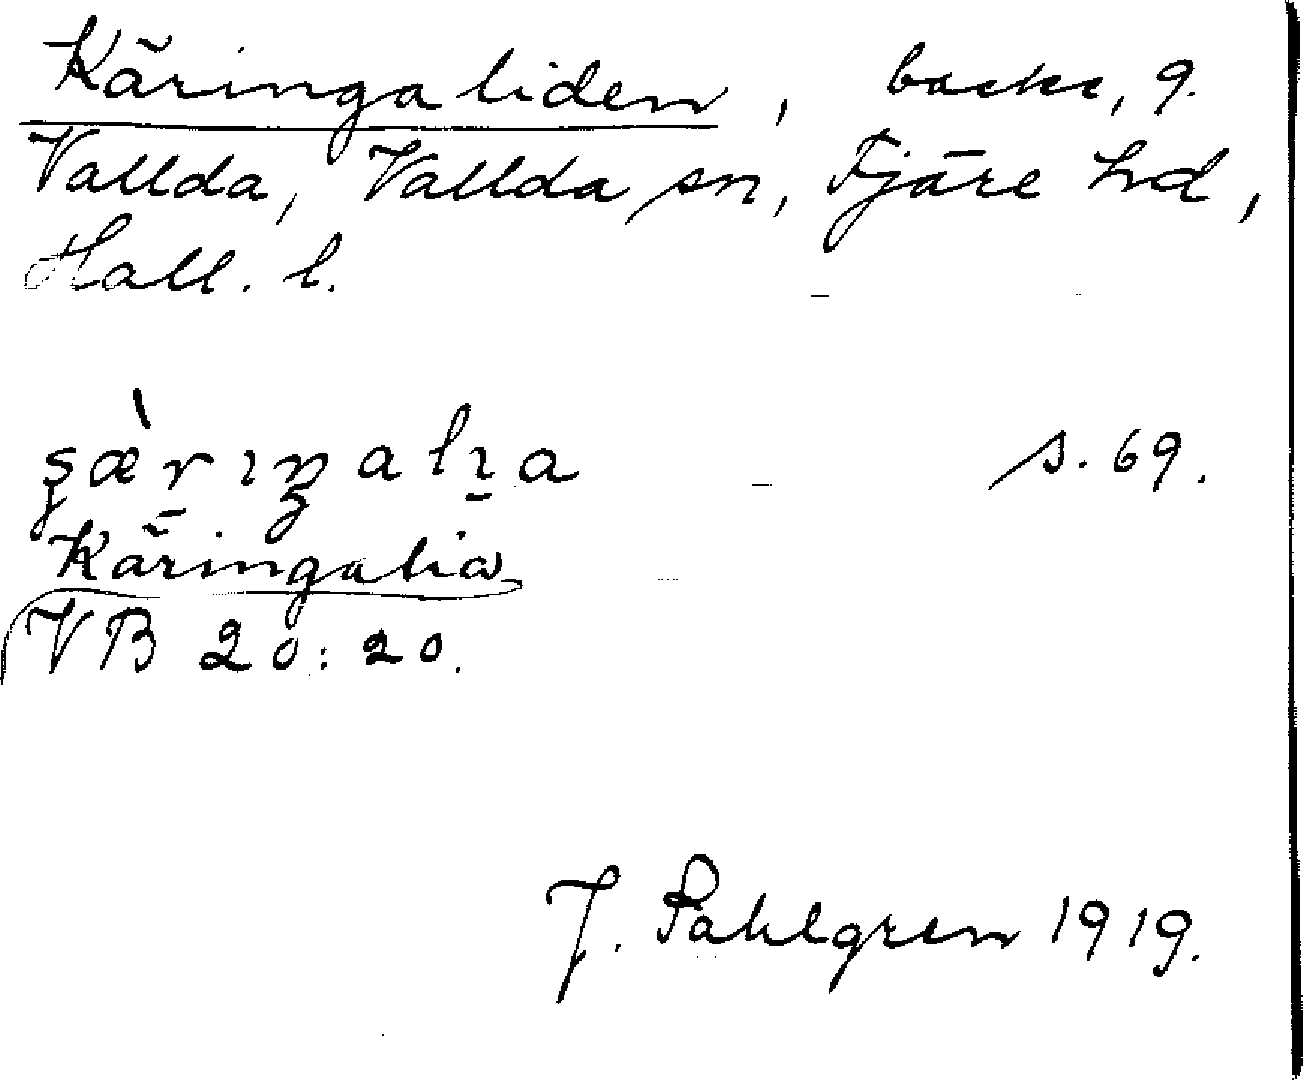 Käringaliden, backe, 9.
Vallda, Vallda sn, Fjäre hd,
Hall. l.
s. 69.
Käringalia
VB 20:20.
J. Sahlgren 1919.